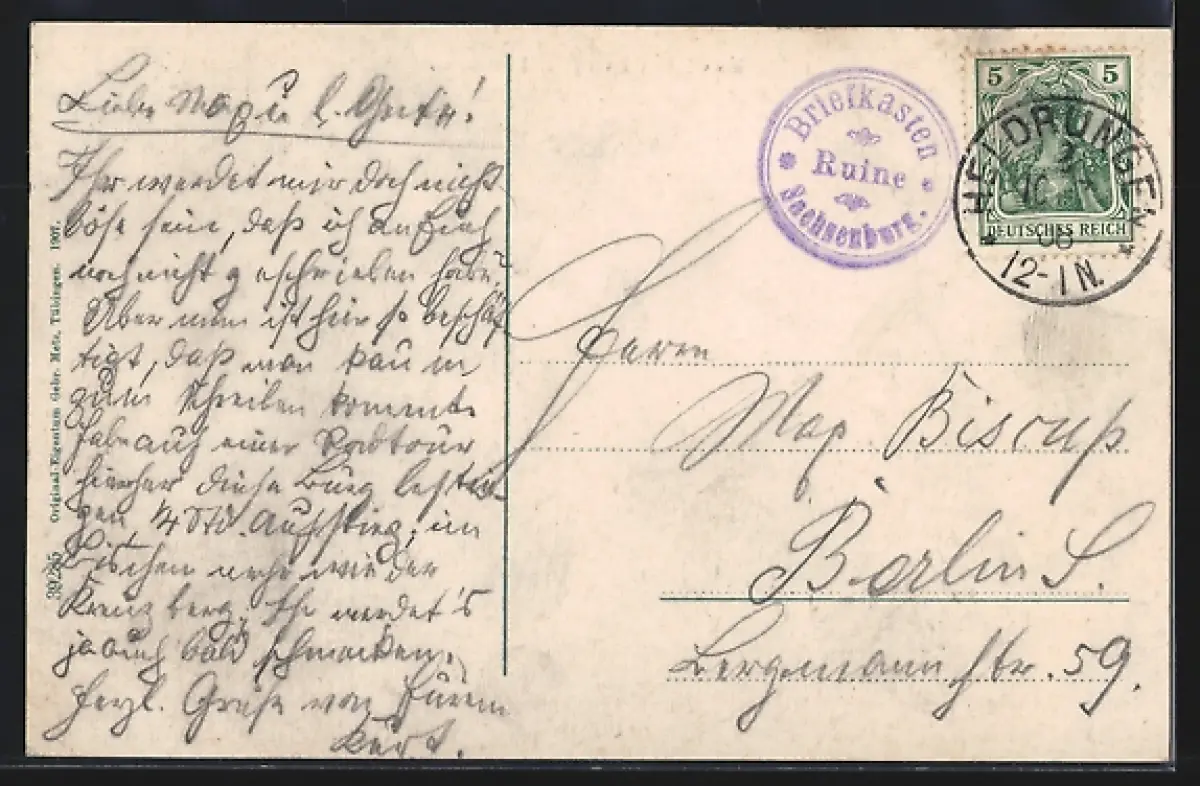 Lieber Max u. l.
Ihr werdet mir doch nicht
böse sein, daß ich an Euch
noch nicht geschrieben habe.
Aber man ist hier so beschäf
tigt, daß man kaum
zum Schreiben kommt.
Habe auf einer Radtour
hierher diese Burg bestie
gen, 1/4 Std. Aufstieg, ein
bischen mehr wie der
Kreuzberg. Ihr werdet's
ja auch bald schmecken.
Herzl. Grüße von Eurem
Kurt.
39285 Original-Eigentum Gebr. Metz, Tübingen. 1907.
Briefkasten
Ruine
Sachsenburg.
5 5
DEUTSCHES REICH
HELDRUNGEN
08
12-1N.
Herrn
Max Biscup
Berlin S.
Bergmannstr. 59.